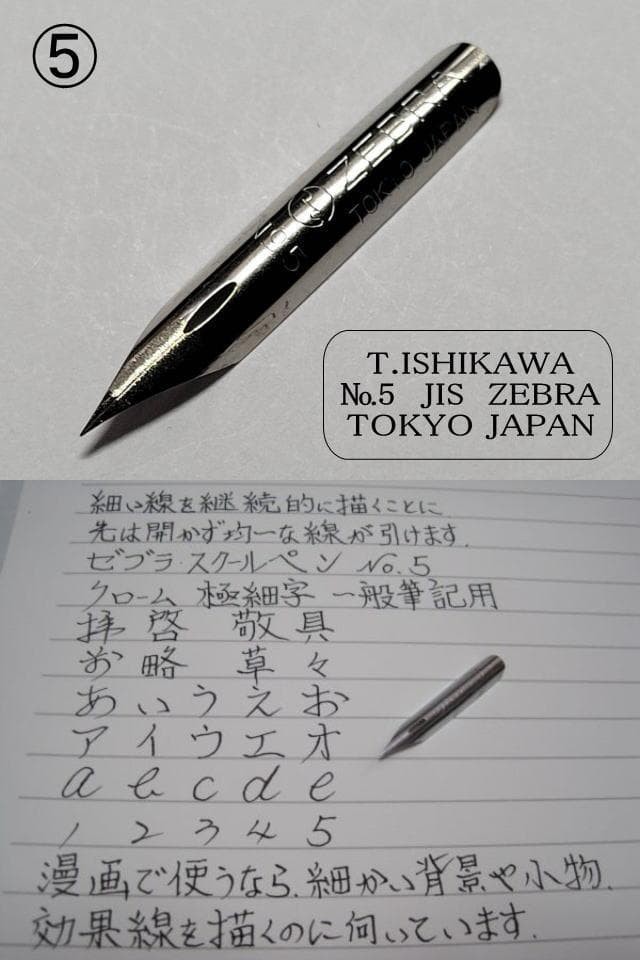 ⑤
ZEBRA
TOKYO JAPAN
T.ISHIKAWA
№.5 JIS ZEBRA
TOKYO JAPAN
細い線を継続的に描くことに
先は開かず均一な線が引けます.
ゼブラ・スクールペン No.5
クローム 極細字 一般筆記用
拝啓 敬具
前略 草々
あいうえお
アイウエオ
a b c d e
1 2 3 4 5
漫画で使うなら、細かい背景や小物、
効果線を描くのに向いています.